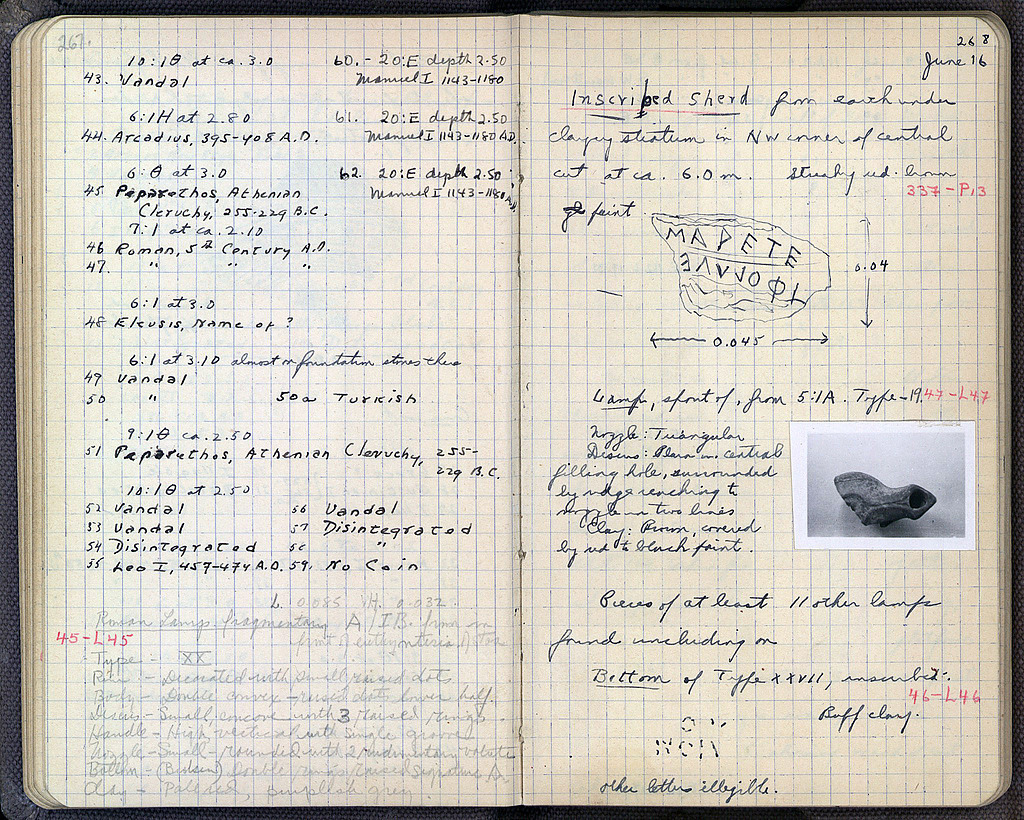 267.
10:1Θ at ca. 3.0
43. Vandal
6:1H at 2.80
44. Arcadius, 395-408 A.D.
6:Θ at 3.0
45 Peparethos, Athenian
Cleruchy, 255-229 B.C.
7:1 at ca. 2.10
46 Roman, 5th Century A.D.
47. " " "
6:1 at 3.0
48 Eleusis, Name of ?
6:1 at 3.10 almost on foundation stones there
49 Vandal
50 " 50a Turkish
9:1Θ ca. 2.50
51 Peparethos, Athenian Cleruchy, 255-
229 B.C.
10:1Θ at 2.50
52 Vandal
53 Vandal
54 Disintegrated
55 Leo I, 457-474 A.D.
56 Vandal
57 Disintegrated
58 "
59. No Coin
60. - 20:E depth 2.50
Manuel I 1143-1180
61. 20:E depth 2.50
Manuel I 1143-1180 A.D.
62. 20:E depth 2.50
Manuel I 1143-1180 A.D.
L. 0.085 H. 0.032
Roman Lamp, fragmentary, A/IB. from in
front of euthynteria of Stoa
45-L45
Type - XX
Rim - Decorated with small raised dots
Body - Double convex - raised dots lower half.
Discus - Small, concave with 3 raised rings
Handle - High vertical with single groove
Nozzle - Small - rounded with 2 rudimentary volute
Bottom - Double rings, raised signature
Clay - Pale red, purplish grey.
268
June 16
Inscribed Sherd from earth under
clayey stratum in NW corner of central
cut at ca. 6.0 m. Streaky red-brown
337-P13
paint
ΜΑΡΕΤΕ
0.04
0.045
Lamp, spout of, from 5:1A. Type-19. 47-L47
Nozzle: Triangular
Discus: Plain in central
filling hole, surrounded
by ridge reaching to
nozzle in two lines
Clay: Brown, covered
by red to black paint.
Pieces of at least 11 other lamps
found including on
Bottom of Type XXVII, inscribed:
46-L46
Buff clay.
other letters illegible.